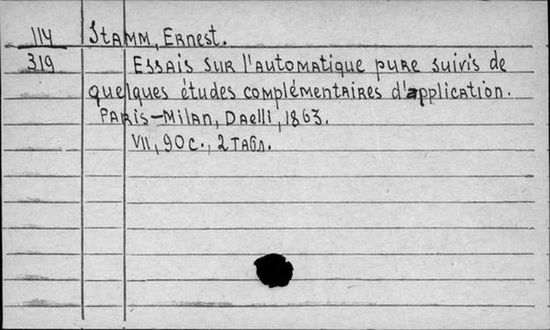 114 Stamm, Ernest.
319 Essais sur l'automatique pure suivis de
quelques études complémentaires d'application.
Paris-Milan, Daelli, 1863.
VII, 90 с., 2 табл.